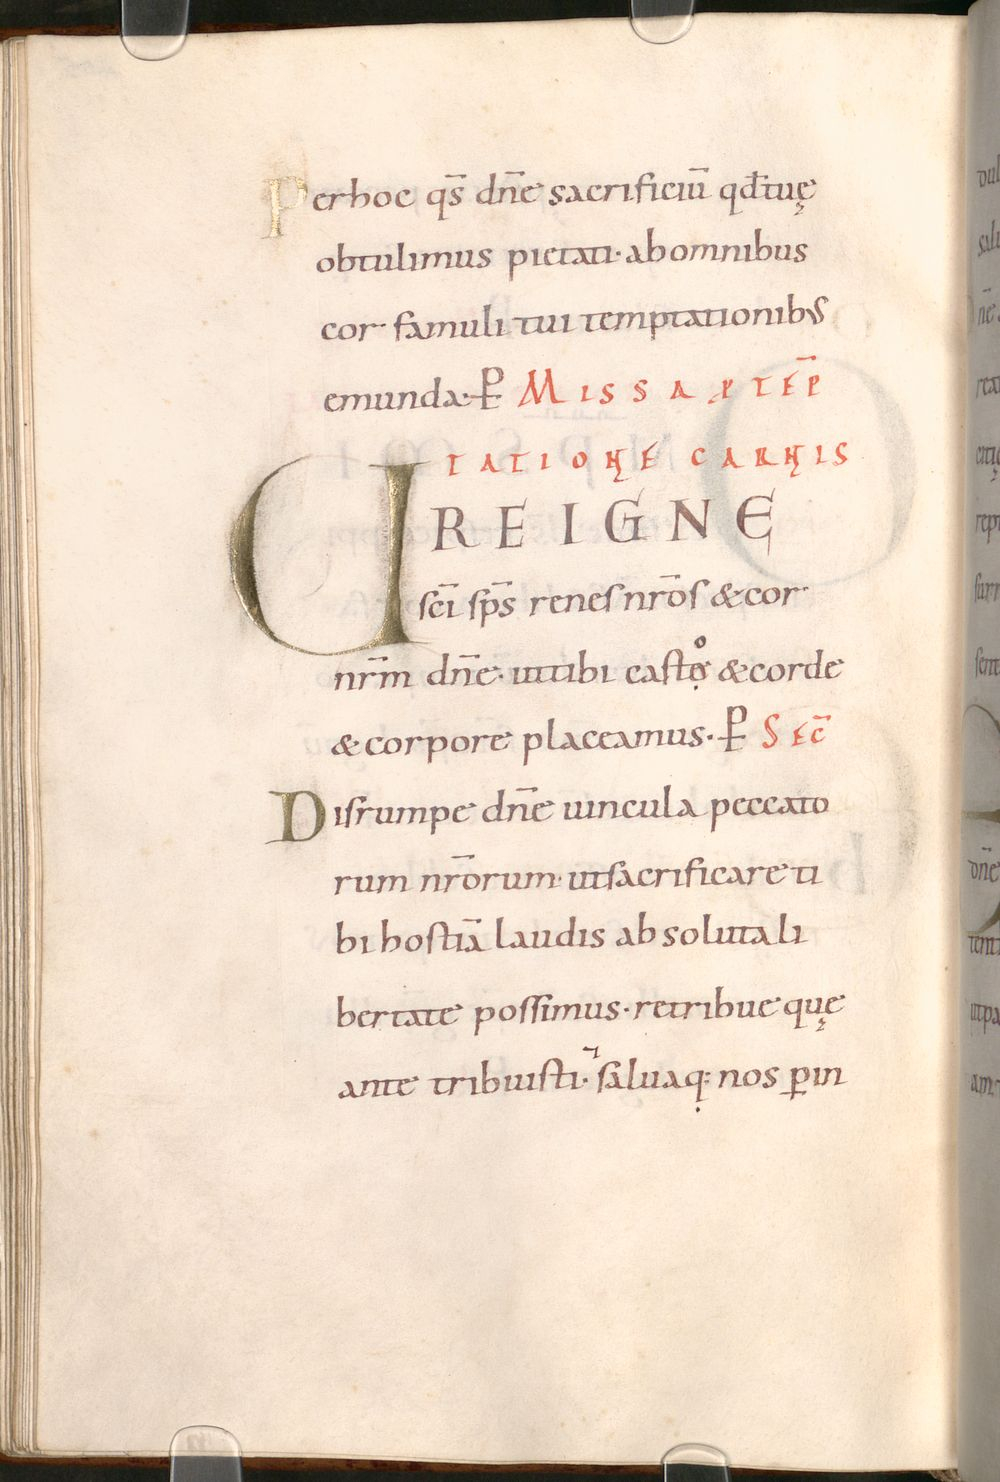 Per hoc q̄s dn̄e sacrificiū qđ tuę
obtulimus pietati· ab omnibus
cor famuli tui temptationibus
emunda· ꝑ MISSA P TEP̄
TATIONE CARNIS
URE IGNE
sc̄i sp̄s renes nr̄os & cor
nr̄m dn̄e· ut tibi casto & corde
& corpore placeamus· ꝑ SEC̄
Disrumpe dn̄e uincula peccato
rum nr̄orum· ut sacrificare ti
bi hostiā laudis absoluta li
bertate possimus· retribue quę
ante tribuisti· saluaq: nos ꝑ in